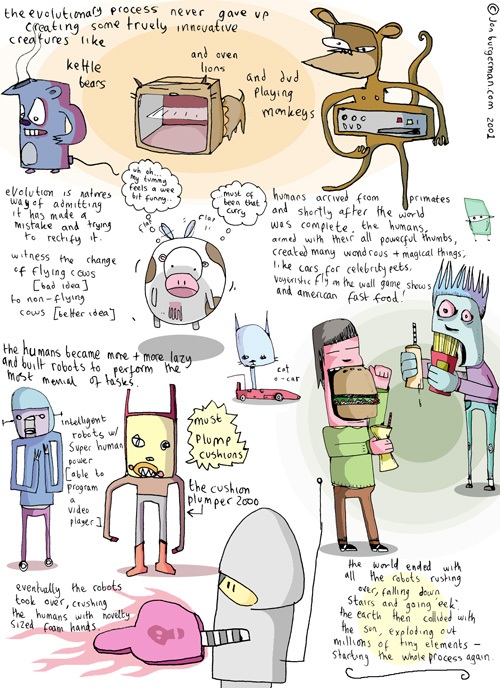 the evolutionary process never gave up
creating some truely innovative
creatures like
kettle
bears
and oven
lions
and dvd
playing
monkeys
© Jon burgerman.com 2001
DVD
evolution is natures
way of admitting
it has made a
mistake and trying
to rectify it.
witness the change
of flying cows
[bad idea]
to non-flying
cows [better idea]
uh oh...
my tummy
feels a wee
bit funny..
must of
been that
curry..
flap
flap
humans arrived from primates
and shortly after the world
was complete. the humans,
armed with their all powerful thumbs,
created many wondrous + magical things;
like cars for celebrity pets,
voyeristic fly on the wall game shows
and american fast food!
cat
o - car
the humans became more + more lazy
and built robots to perform the
most menial of tasks.
intelligent
robots w/
super human
power
[able to
program
a
video
player]
must
plump
cushions
the cushion
plumper 2000
eventually the robots
took over, crushing
the humans with novelty
sized foam hands.
the world ended with
all the robots rushing
over, falling down
stairs and going 'eek'.
the earth then collided with
the sun, exploding out
millions of tiny elements -
starting the whole process again.